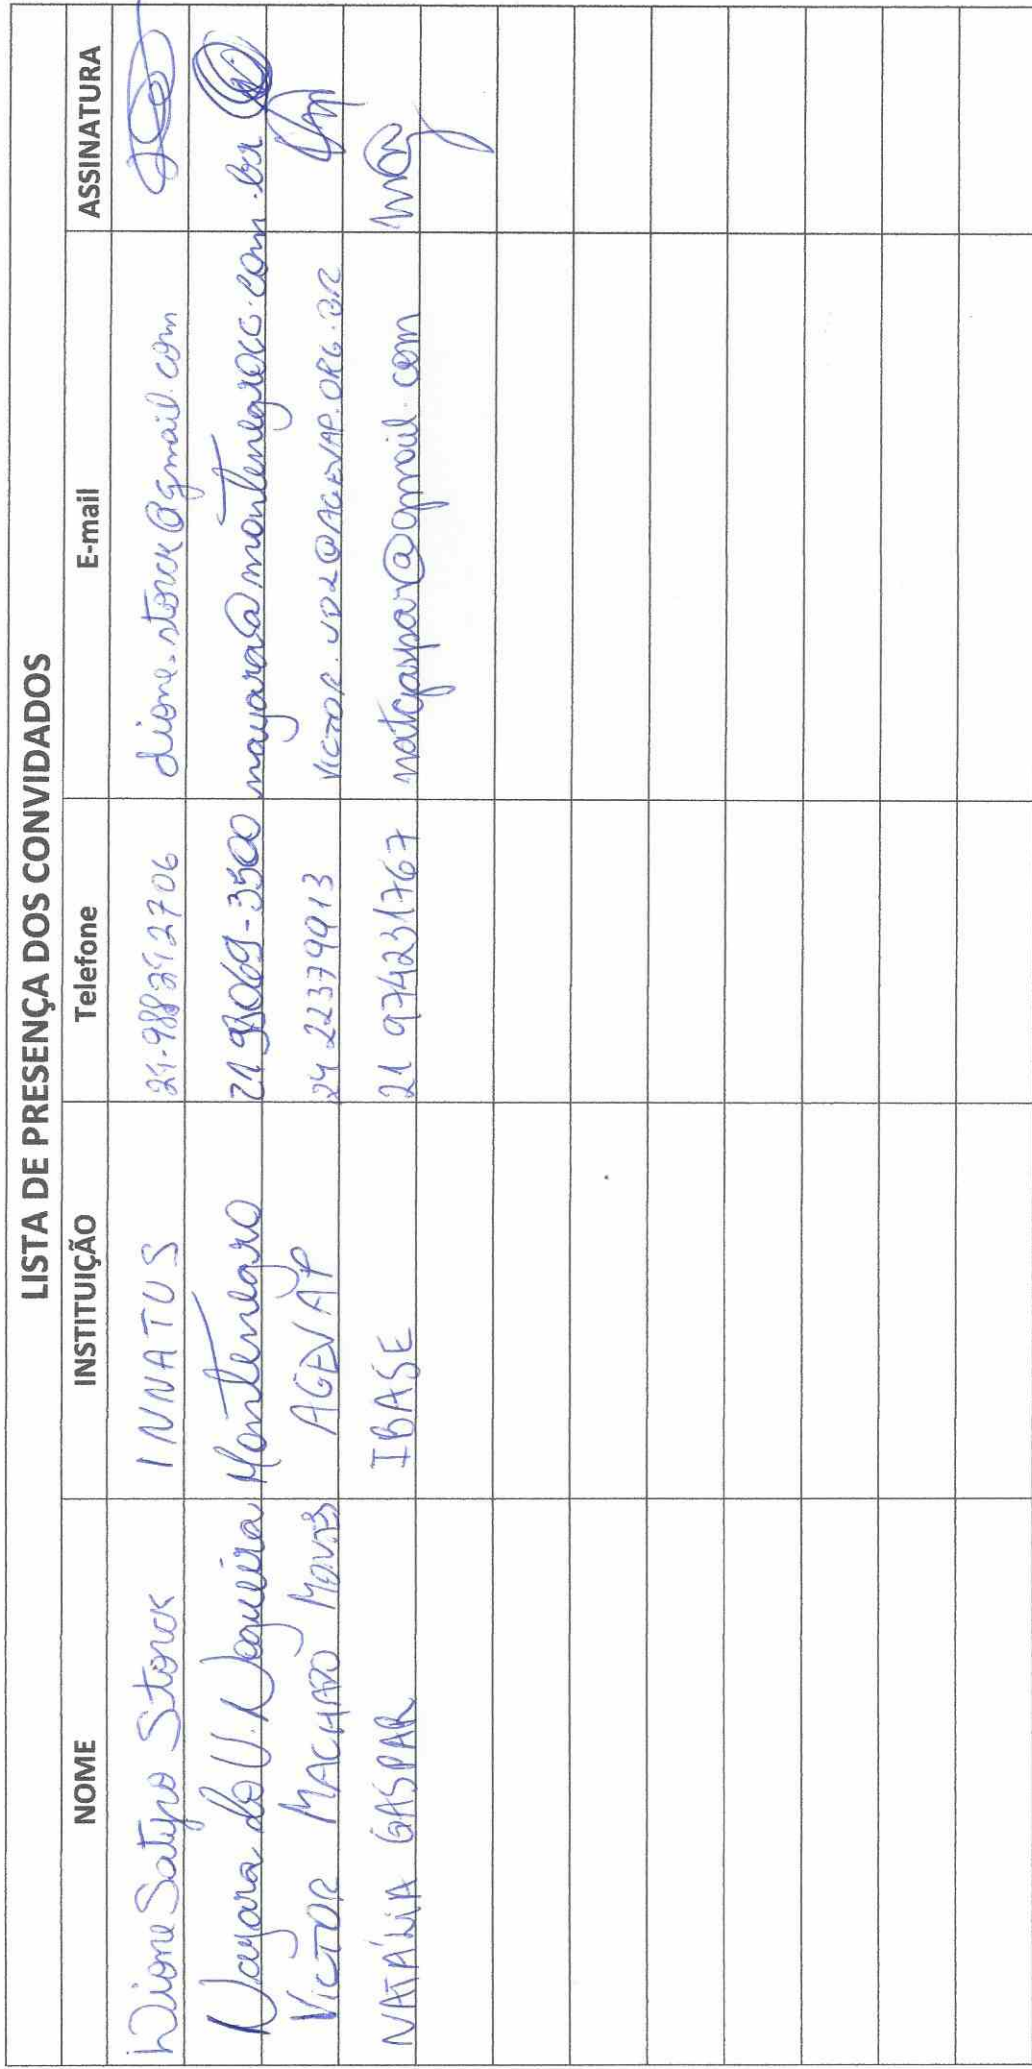 LISTA DE PRESENÇA DOS CONVIDADOS
NOME INSTITUIÇÃO Telefone E-mail ASSINATURA
Dione Satyro Storck INNATUS 21-988292706 dione.storck@gmail.com
Nayara do V. Nogueira Montenegro 21 98069-3500 nayara@montenegrocc.com.br
VICTOR MACHADO MONTES AGEVAP 24 22379913 VICTOR.UD2@AGEVAP.ORG.BR
NATÁLIA GASPAR IBASE 21 974231767 natgaspar@gmail.com